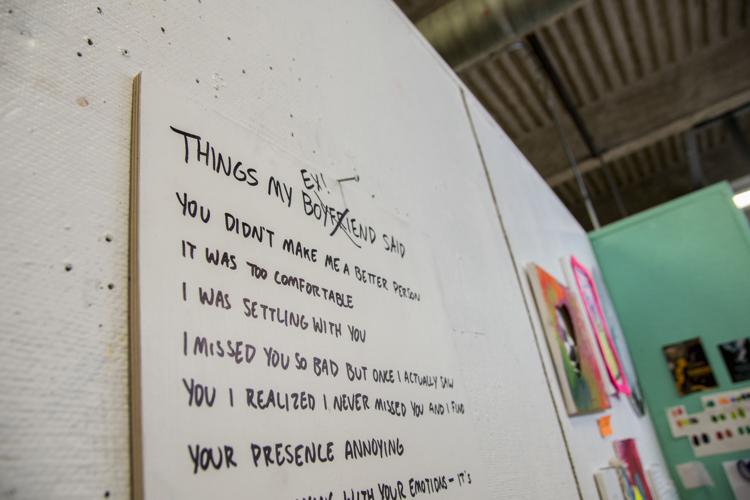 EX!
THINGS MY BOYFRIEND SAID
YOU DIDN'T MAKE ME A BETTER PERSON
IT WAS TOO COMFORTABLE
I WAS SETTLING WITH YOU
I MISSED YOU SO BAD BUT ONCE I ACTUALLY SAW
YOU I REALIZED I NEVER MISSED YOU AND I FIND
YOUR PRESENCE ANNOYING
WITH YOUR EMOTIONS - IT'S